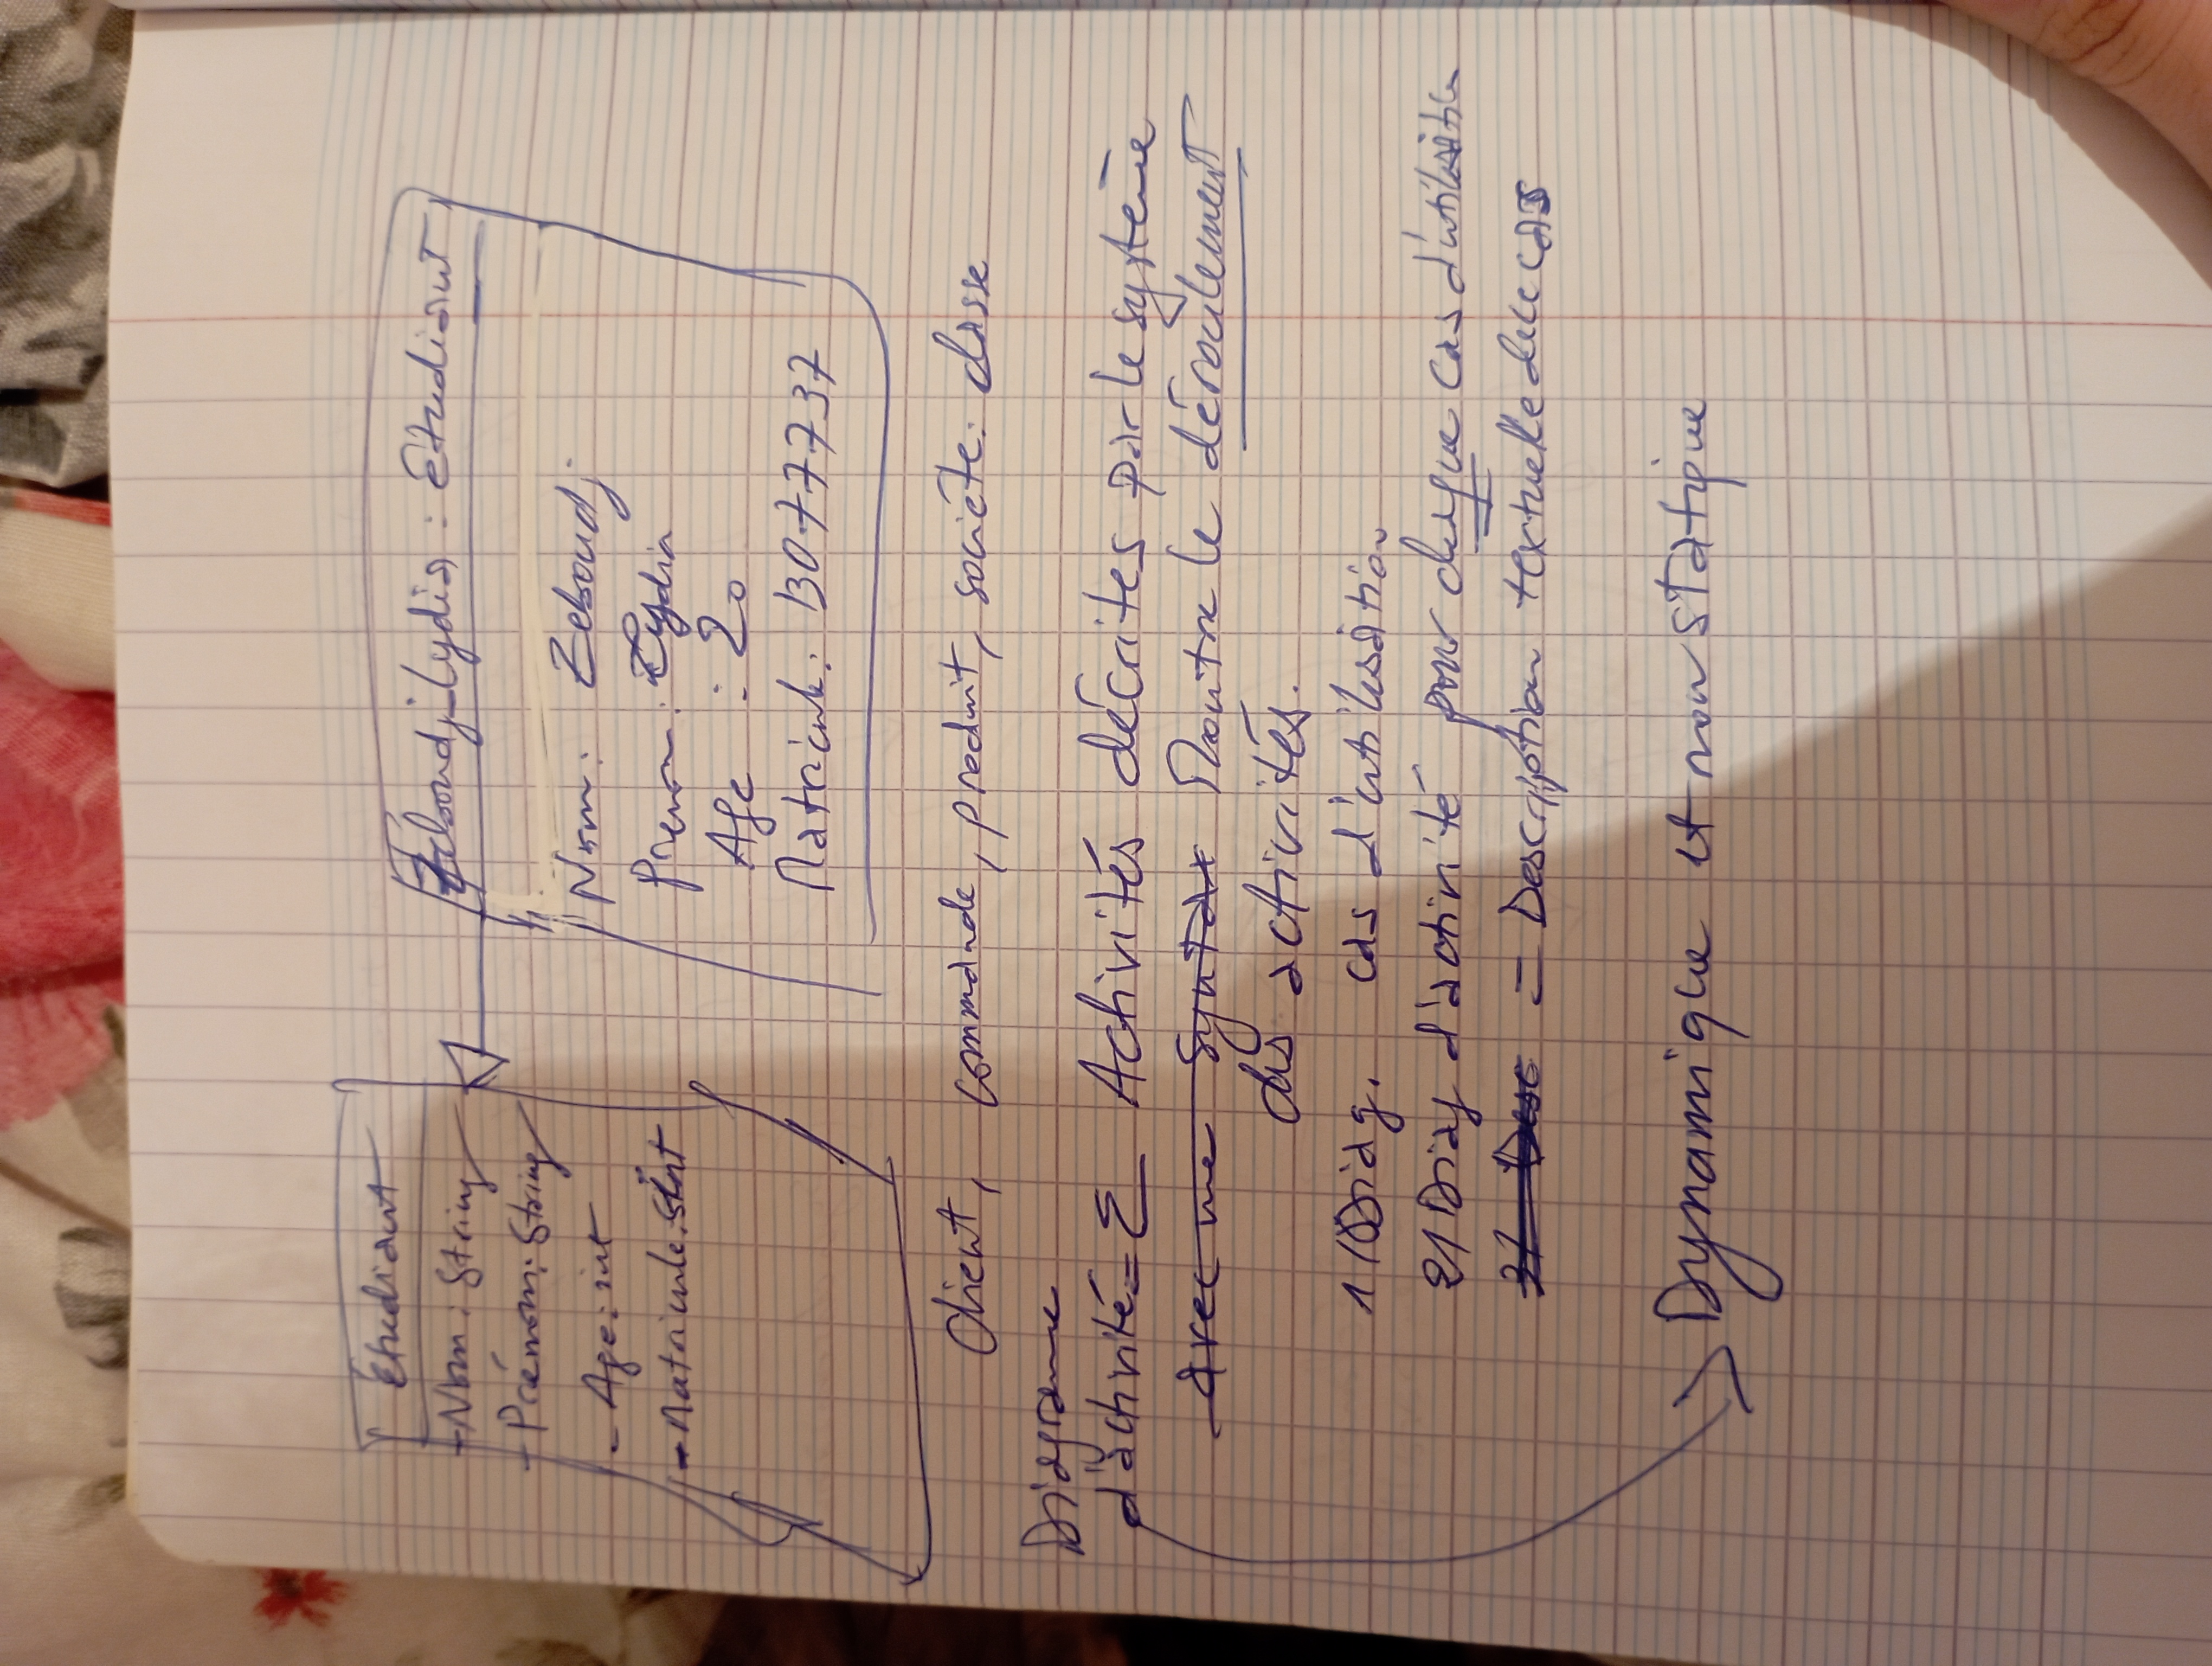 Étudiant
- Nom : String
- Prénom : String
- Age : int
- Matricule : int
Zeboudj Lydia : Etudiant
Nom : Zeboudj
Prenom : Lydia
Age : 20
Matricule : 13077737
Client, commande, produit, société : classe
Diagramme
d'activité = Σ Activités décrites par le système
avec une syntax Montre le déroulement
des activités.
1/ Diag. cas d'utilisation
2/ Diag d'activité pour chaque cas d'utilisation
3/ Desc = Description textuelle de ce cas
Dynamique et non statique